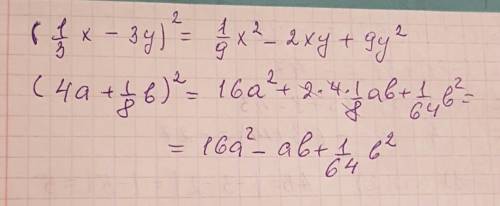 (1/3 x - 3y)² = 1/9 x² - 2xy + 9y²
(4a + 1/8 b)² = 16a² + 2·4·1/8 ab + 1/64 b² =
= 16a² - ab + 1/64 b²